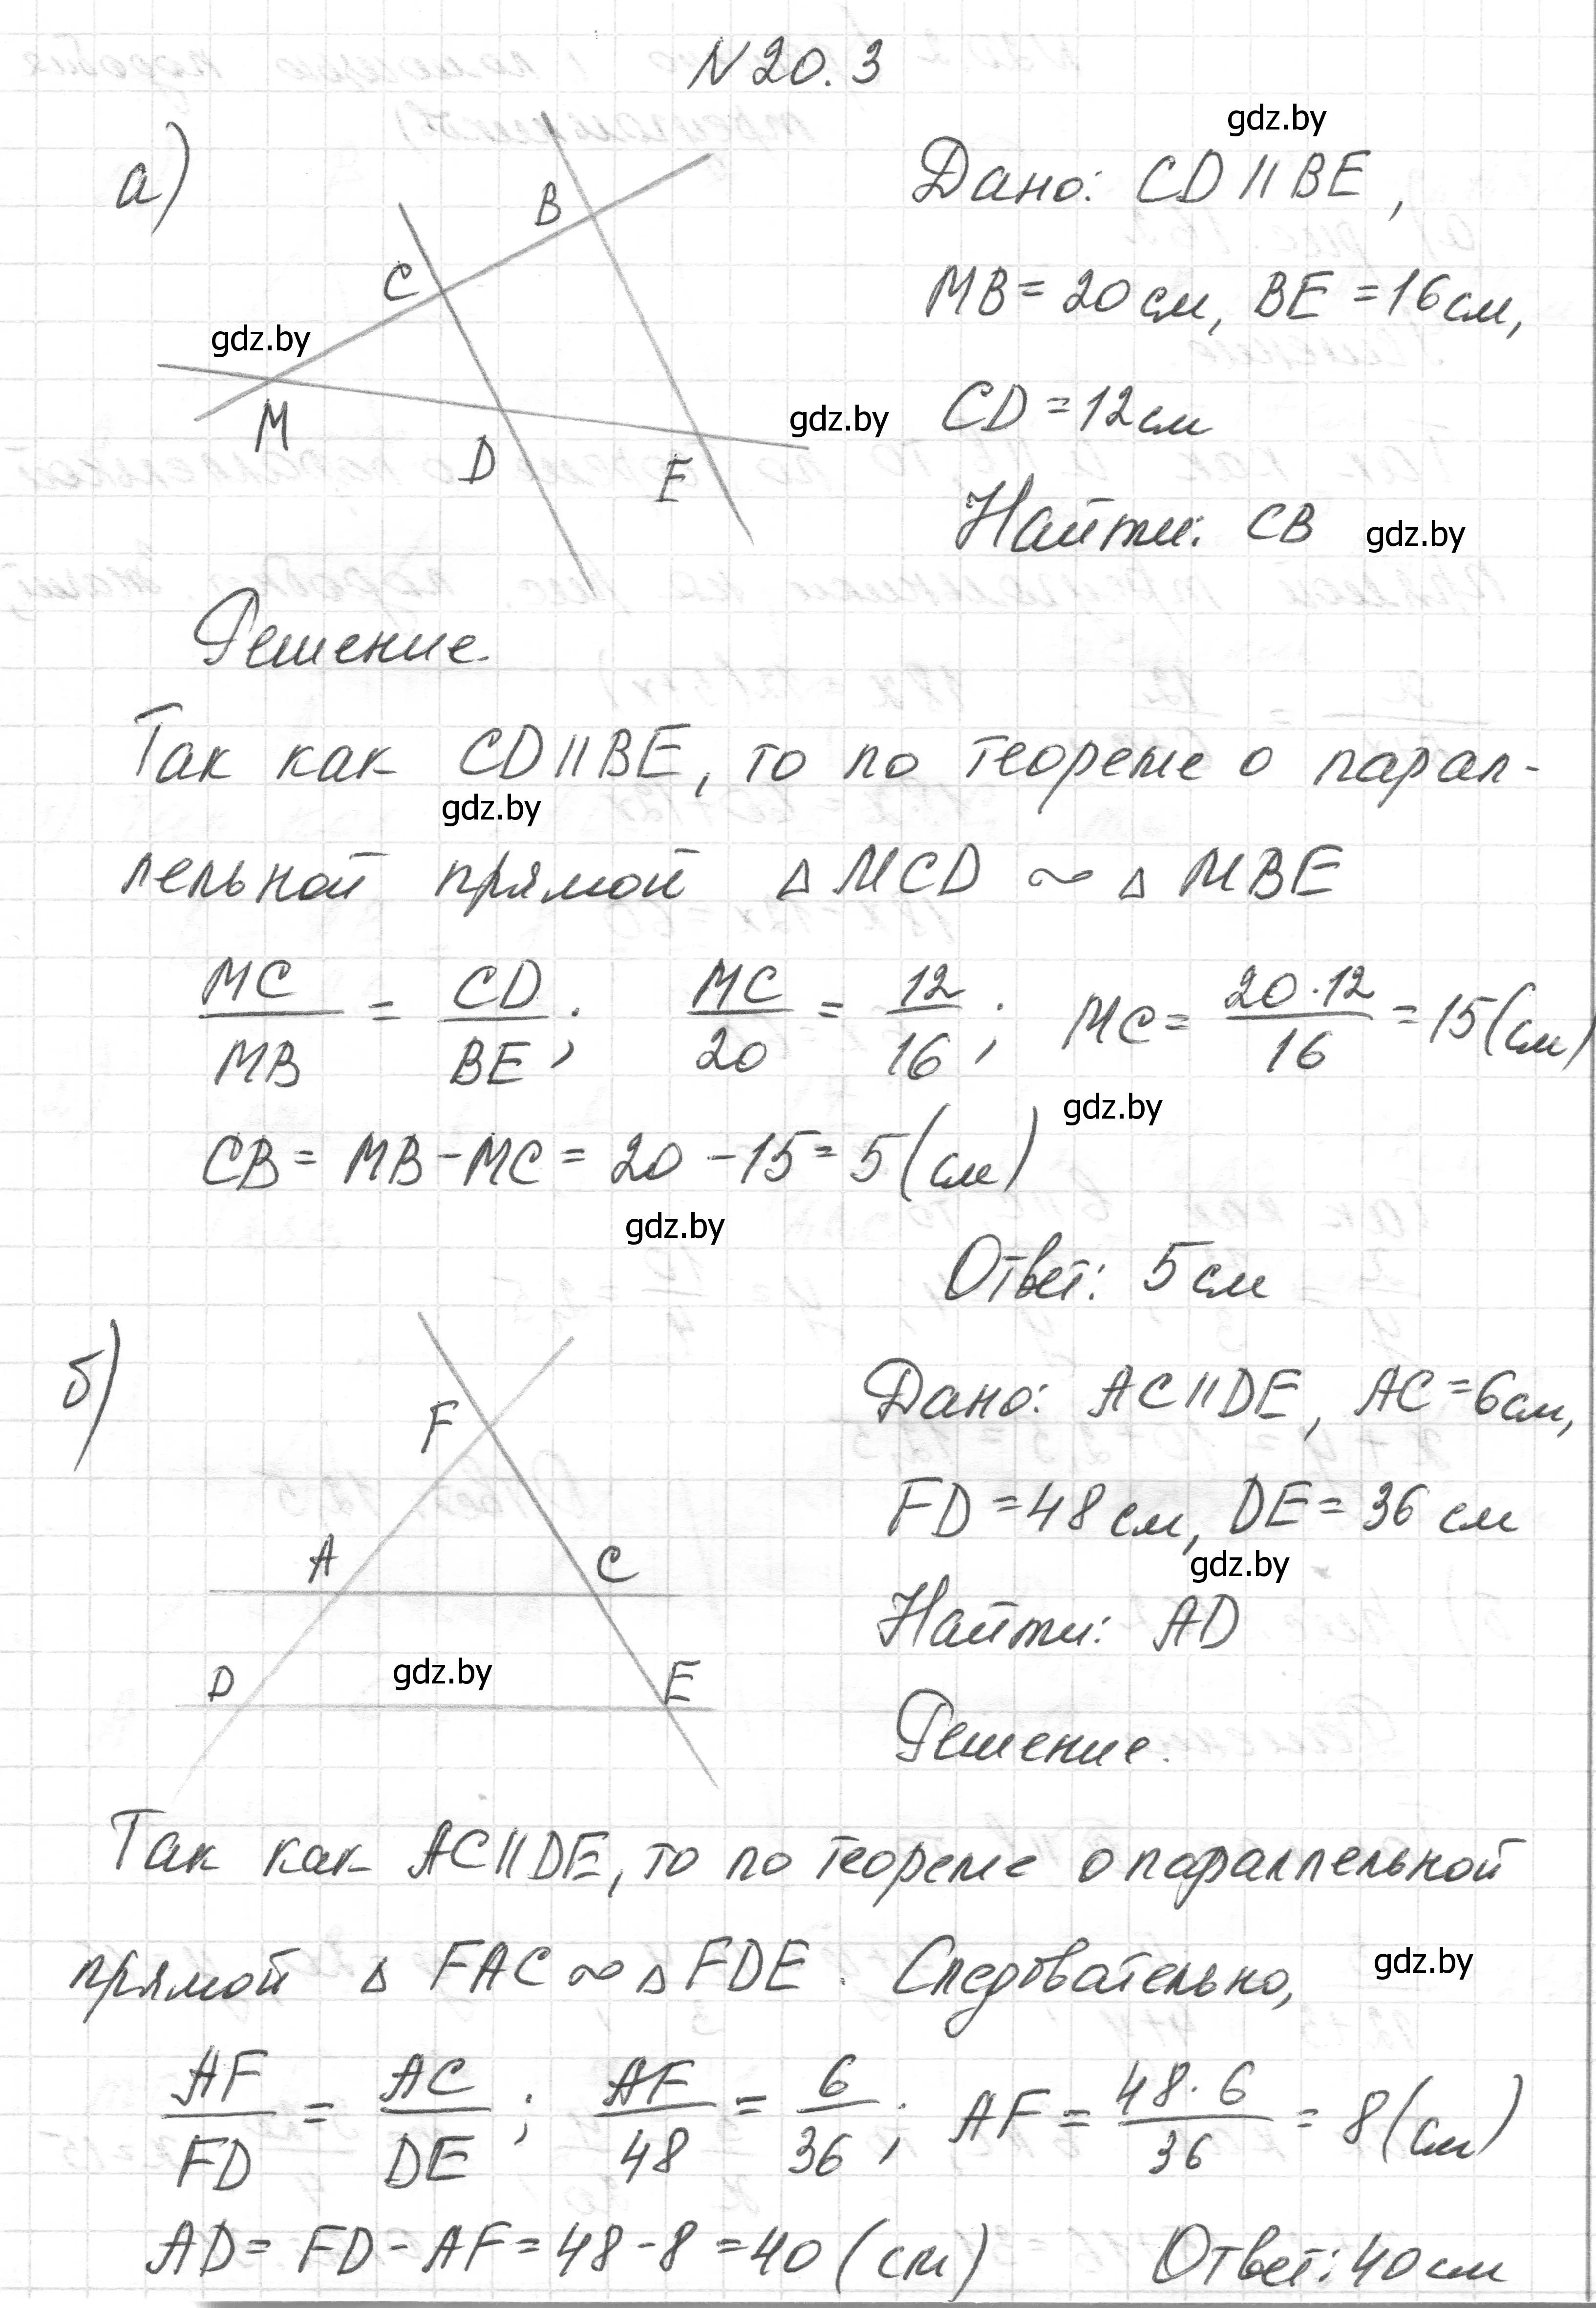 N 20.3
gdz.by
а)
B
C
gdz.by
M
D
E
gdz.by
Дано: CD || BE,
MB = 20 см, BE = 16 см,
CD = 12 см
Найти: CB gdz.by
Решение.
Так как CD || BE, то по теореме о парал-
gdz.by
лельной прямой Δ MCD ∾ Δ MBE
MC/MB = CD/BE; MC/20 = 12/16; MC = 20·12/16 = 15 (см)
gdz.by
CB = MB - MC = 20 - 15 = 5 (см)
gdz.by
Ответ: 5 см
б)
F
A
C
D
gdz.by
E
Дано: AC || DE, AC = 6 см,
FD = 48 см, DE = 36 см
gdz.by
Найти: AD
Решение.
Так как AC || DE, то по теореме о параллельной
прямой Δ FAC ∾ Δ FDE. Следовательно,
gdz.by
AF/FD = AC/DE; AF/48 = 6/36; AF = 48·6/36 = 8 (см)
AD = FD - AF = 48 - 8 = 40 (см) Ответ: 40 см